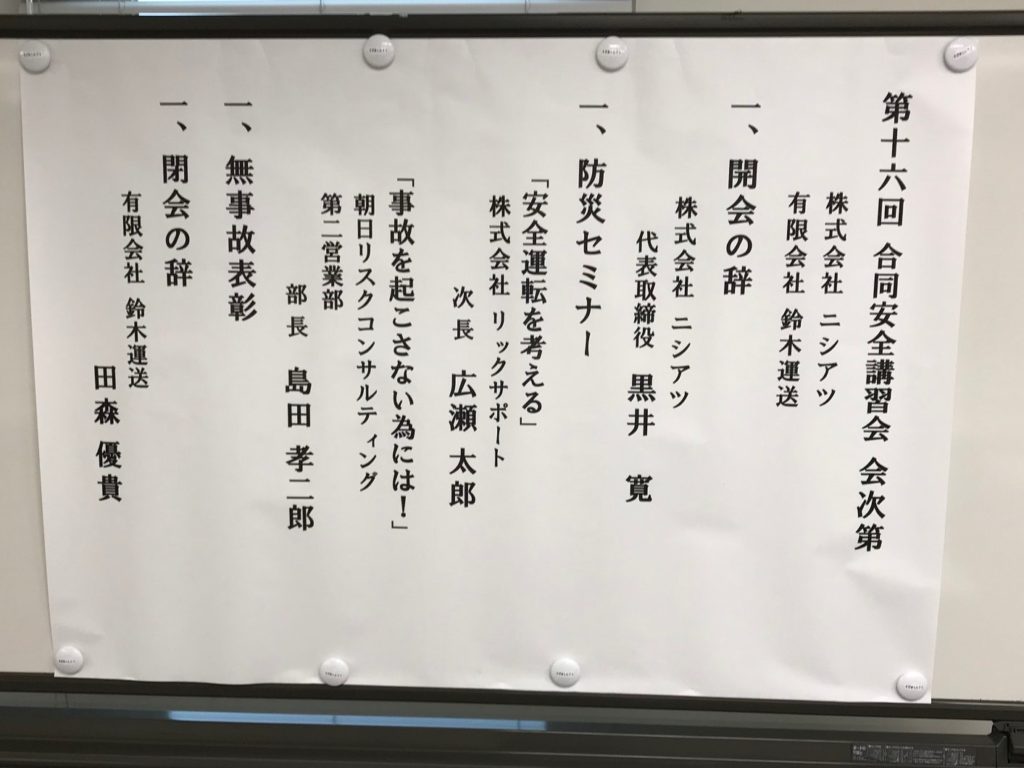 第十六回 合同安全講習会 会次第
株式会社 ニシアツ
有限会社 鈴木運送
一、開会の辞
株式会社 ニシアツ
代表取締役 黒井 寛
一、防災セミナー
「安全運転を考える」
株式会社 リックサポート
次長 広瀬 太郎
「事故を起こさない為には!」
朝日リスクコンサルティング
第二営業部
部長 島田 孝二郎
一、無事故表彰
一、閉会の辞
有限会社 鈴木運送
田森 優貴